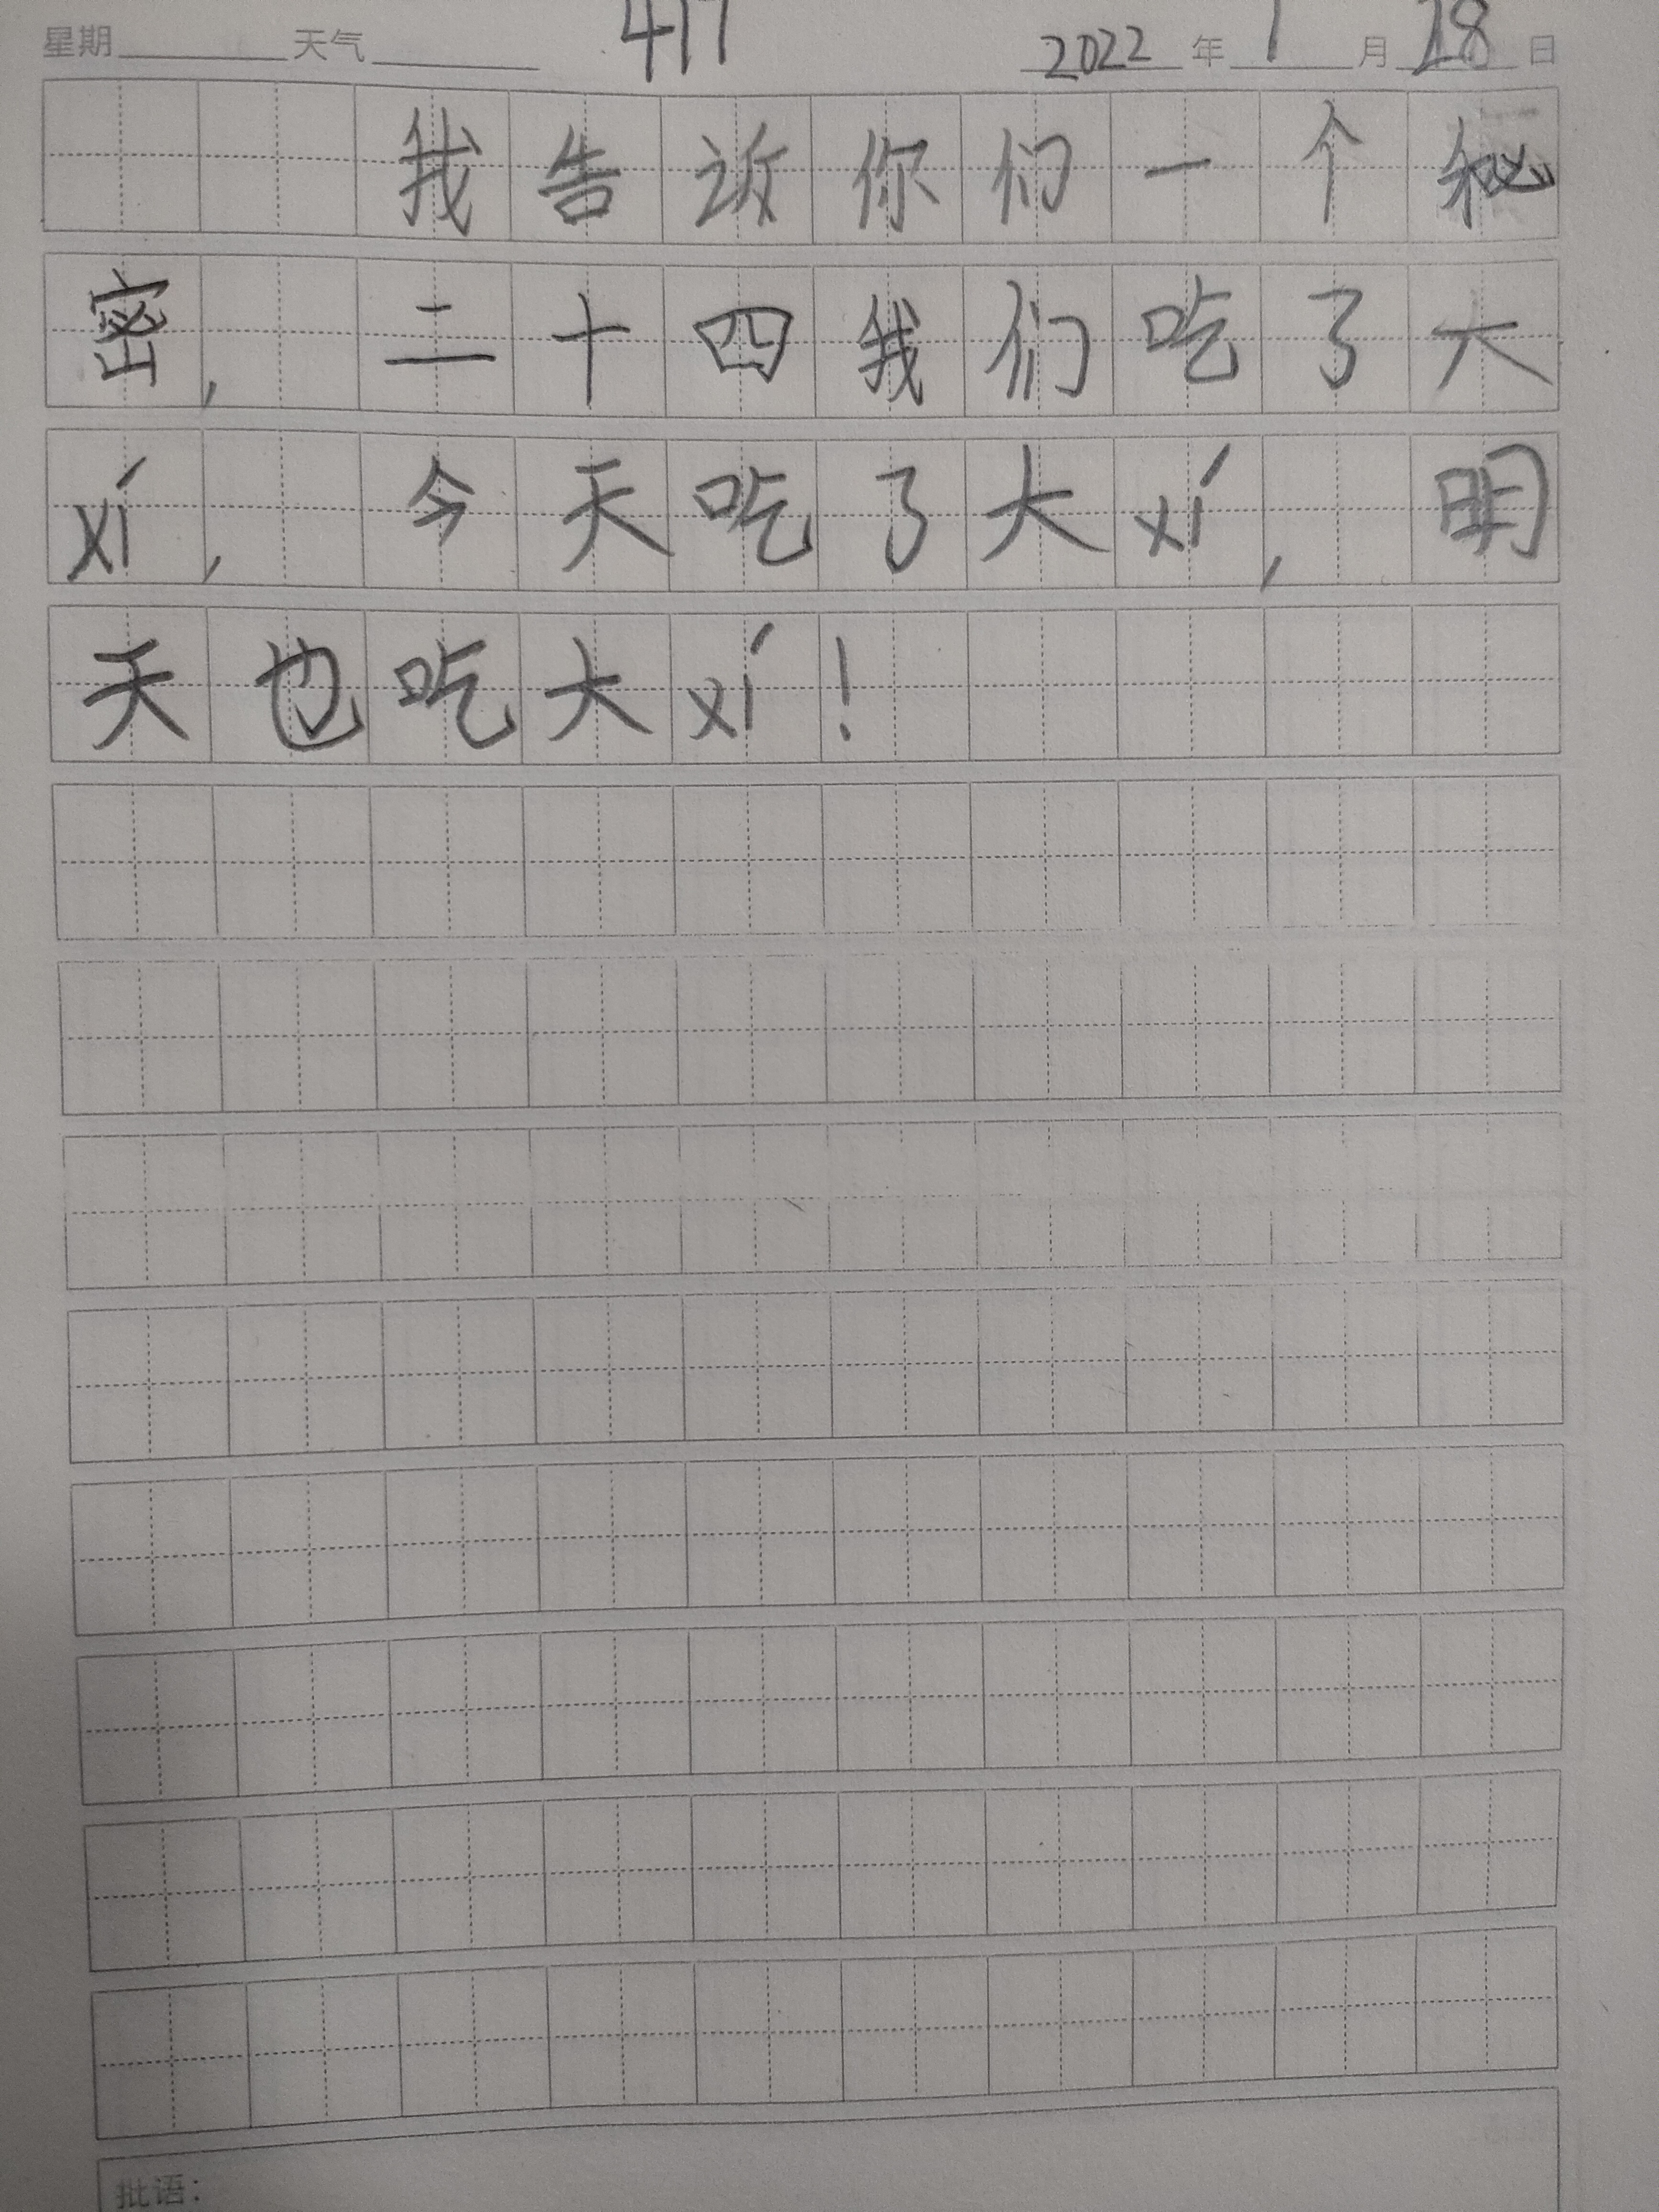 星期 天气 417 2022 年 1 月 28 日
我告诉你们一个秘
密,二十四我们吃了大
xí,今天吃了大xí,明
天也吃大xí!
批语: